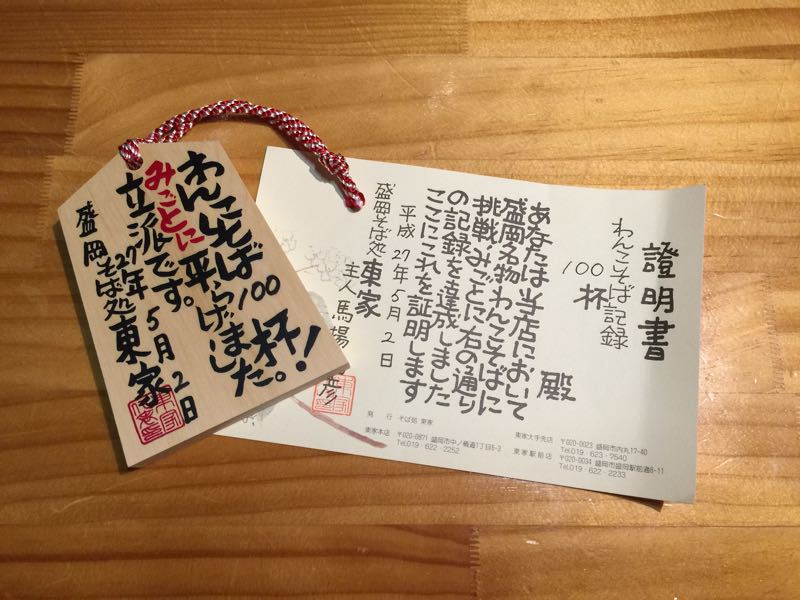 わんこそば100杯!
みごとに平らげました。
立派です。
27年5月2日
盛岡そば処東家
證明書
わんこそば記録
100杯
殿
あなたは当店において
盛岡名物わんこそばに
挑戦みごとに右の通り
の記録を達成しました
ここにこれを証明します
平成27年5月2日
盛岡そば処東家
主人 馬場
彦
発 行 そば処 東家
東家本店 〒020-0871 盛岡市中ノ橋通1丁目8-3
Tel.019・622・2252
東家大手先店 〒020-0023 盛岡市内丸17-40
Tel.019・623・7540
東家駅前店 〒020-0034 盛岡市盛岡駅前通8-11
Tel.019・622・2233